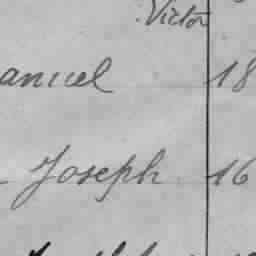 Victor
anuel 18
Joseph 16